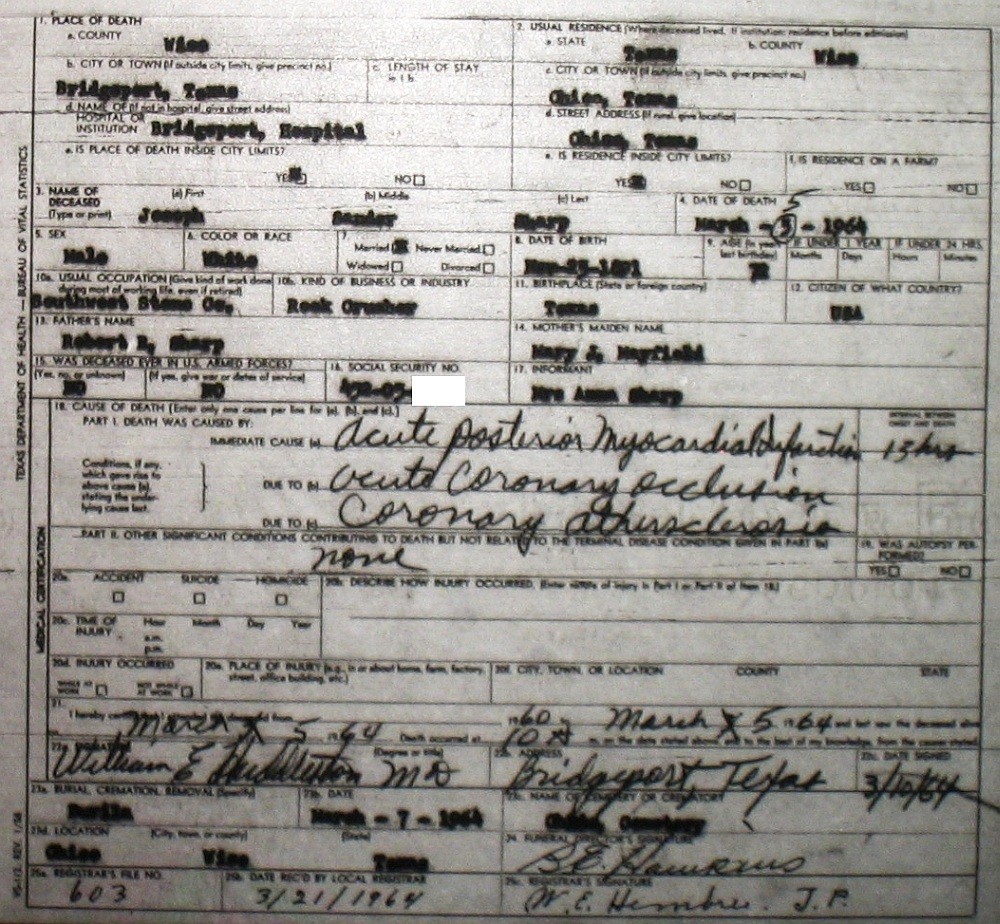 1. PLACE OF DEATH
a. COUNTY
Wise
2. USUAL RESIDENCE (Where deceased lived. If institution: residence before admission)
a. STATE
Texas
b. COUNTY
Wise
b. CITY OR TOWN (If outside city limits, give precinct no.)
Bridgeport, Texas
c. LENGTH OF STAY
in 1 b.
c. CITY OR TOWN (If outside city limits, give precinct no.)
Chico, Texas
d. NAME OF (If not in hospital, give street address)
HOSPITAL OR
INSTITUTION Bridgeport, Hospital
d. STREET ADDRESS (If rural, give location)
Chico, Texas
e. IS PLACE OF DEATH INSIDE CITY LIMITS?
YES NO
e. IS RESIDENCE INSIDE CITY LIMITS?
YES NO
f. IS RESIDENCE ON A FARM?
YES NO
3. NAME OF
DECEASED
(Type or print)
(a) First
Joseph
(b) Middle
Sander
(c) Last
Sharp
4. DATE OF DEATH
5
March - 3 - 1964
5. SEX
Male
6. COLOR OR RACE
White
7.
Married Never Married
Widowed Divorced
8. DATE OF BIRTH
1891
9. AGE (In years
last birthday)
72
IF UNDER 1 YEAR
Months Days
IF UNDER 24 HRS.
Hours Minutes
10a. USUAL OCCUPATION (Give kind of work done
during most of working life, even if retired)
Southwest Stone Co,
10b. KIND OF BUSINESS OR INDUSTRY
Rock Crusher
11. BIRTHPLACE (State or foreign country)
Texas
12. CITIZEN OF WHAT COUNTRY?
USA
13. FATHER'S NAME
Robert Sharp
14. MOTHER'S MAIDEN NAME
Mary J. Mayfield
15. WAS DECEASED EVER IN U.S. ARMED FORCES?
(Yes, no, or unknown) (If yes, give war or dates of service)
NO NO
16. SOCIAL SECURITY NO.
17. INFORMANT
Mrs Anna Sharp
18. CAUSE OF DEATH (Enter only one cause per line for (a), (b), and (c).)
PART I. DEATH WAS CAUSED BY:
INTERVAL BETWEEN
ONSET AND DEATH
IMMEDIATE CAUSE (a) Acute posterior Myocardial Infarction 13 hrs
Conditions, if any,
which gave rise to
above cause (a),
stating the under-
lying cause last.
DUE TO (b) Acute Coronary occlusion
DUE TO (c) Coronary
PART II. OTHER SIGNIFICANT CONDITIONS CONTRIBUTING TO DEATH BUT NOT RELATED TO THE TERMINAL DISEASE CONDITION GIVEN IN PART I(a)
none
19. WAS AUTOPSY PER-
FORMED?
YES NO
20a. ACCIDENT SUICIDE HOMICIDE
20b. DESCRIBE HOW INJURY OCCURRED. (Enter nature of injury in Part I or Part II of Item 18.)
20c. TIME OF
INJURY
Hour Month Day Year
a.m.
p.m.
20d. INJURY OCCURRED
WHILE AT
WORK
NOT WHILE
AT WORK
20e. PLACE OF INJURY (e.g., in or about home, farm, factory,
street, office building, etc.)
20f. CITY, TOWN, OR LOCATION COUNTY STATE
21.
I hereby 1960 March 5 1964 and last saw the deceased alive
March 5 1964 Death occurred at 10 A m. on the date stated above, and to the best of my knowledge, from the causes stated.
22a. SIGNATURE (Degree or title)
William E Huddleston MD
22b. ADDRESS
Bridgeport, Texas
22c. DATE SIGNED
3/10/64
23a. BURIAL, CREMATION, REMOVAL (Specify)
23b. DATE
March - 7 - 1964
23c. NAME OF CEMETERY OR CREMATORY
Chico Cemetery
23d. LOCATION (City, town, or county) (State)
Chico Wise Texas
24. FUNERAL DIRECTOR'S SIGNATURE
B.E. Hawkins
25a. REGISTRAR'S FILE NO.
603
25b. DATE REC'D BY LOCAL REGISTRAR
3/21/1964
25c. REGISTRAR'S SIGNATURE
W. E. Hembree J.P.
TEXAS DEPARTMENT OF HEALTH — BUREAU OF VITAL STATISTICS
MEDICAL CERTIFICATION
VS-112. REV. 1/58